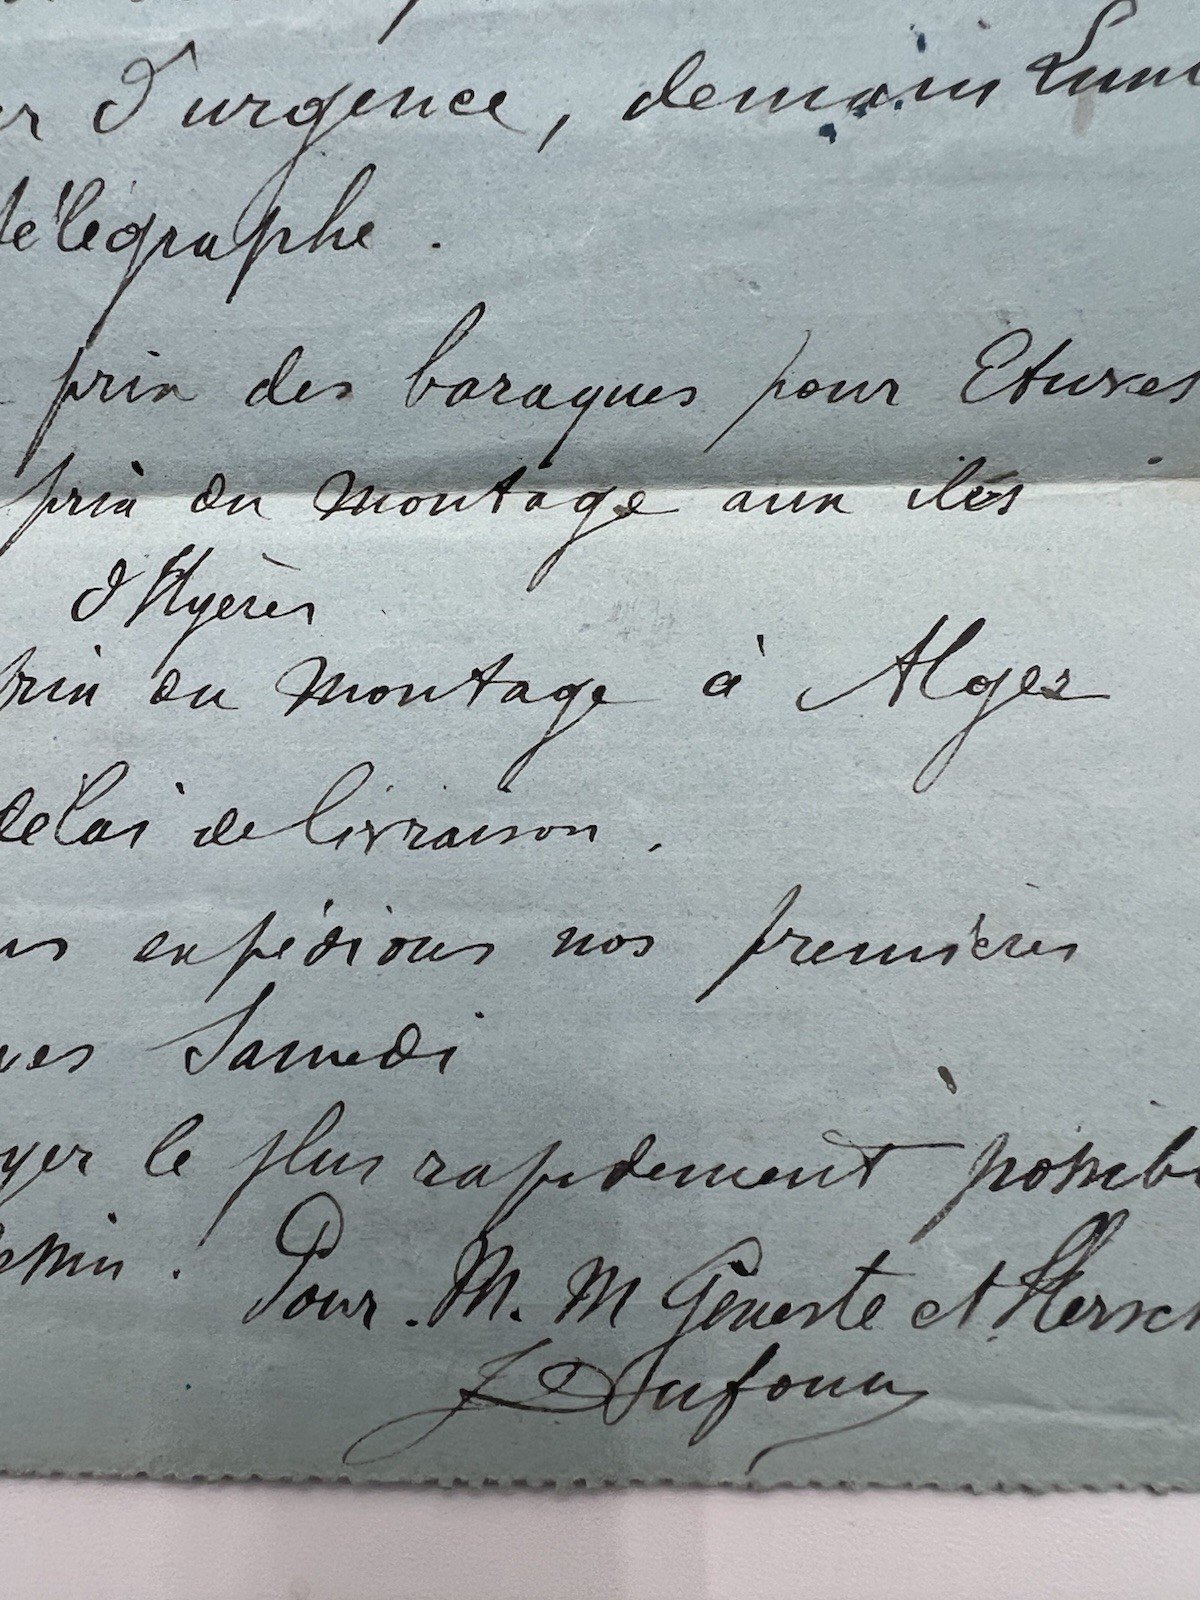 d'urgence, demain
télégraphe.
prix des baraques pour Etuves
prix du montage aux iles
d'Hyères
prix du montage à Alger
délai de livraison.
expédions nos premières
Samedi
le plus rapidement possib
Pour. M. M Geneste et Hersch
Dufour